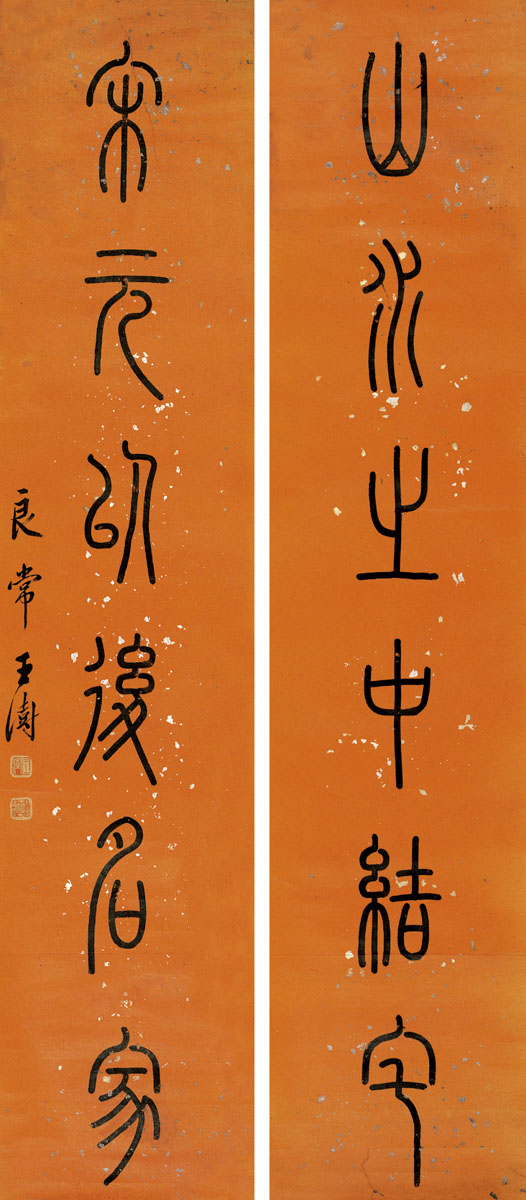 山水之中結宇
宋元以後名家
良常王澍